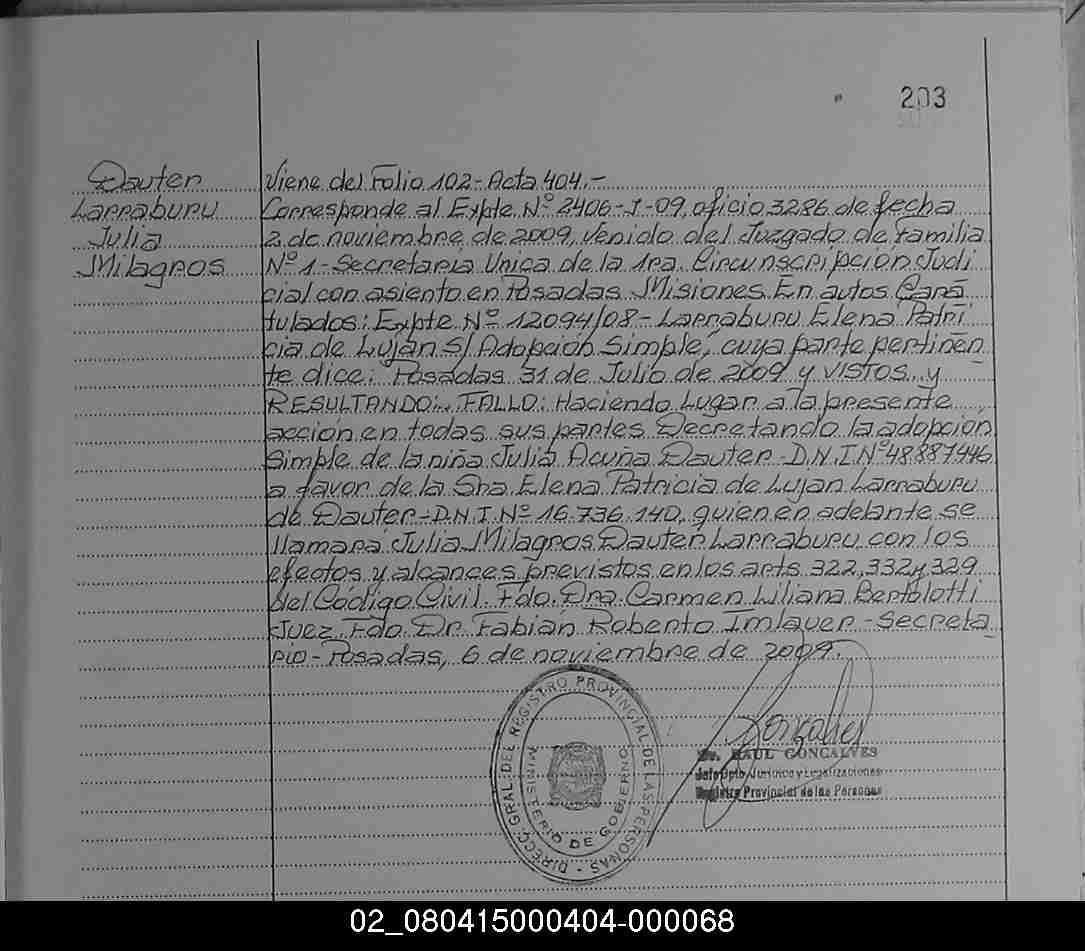 203
Dauter
Larraburu
Julia
Milagros
Viene del Folio 102-Acta 404.-
Corresponde al Expte Nº 2406-J-09, oficio 3286 de fecha
2 de noviembre de 2009, Venido del Juzgado de Familia
Nº 1-Secretaria Unica de la 1ra. Circunscripción Judi
cial con asiento en Posadas Misiones. En autos Cara
tulados: Expte Nº 12094/08-Larraburu Elena Patri
cia de Luján S/ Adopción Simple, cuya parte pertinen
te dice: Posadas 31 de Julio de 2009 y VISTOS... y
RESULTANDO:.. FALLO: Haciendo Lugar a la presente
acción en todas sus partes Decretando la adopción
Simple de la niña Julia Acuña Dauter-D.N.I Nº 48887446
a favor de la Sra. Elena Patricia de Lujan Larraburu
de Dauter-D.N.I. Nº 16.736.140, quien en adelante se
llamará Julia Milagros Dauter Larraburu con los
efectos y alcances previstos en los arts 322, 332 y 329
del Código Civil. Fdo. Dra. Carmen Liliana Bertolotti
Juez. Fdo. Dr. Fabián Roberto Imlauer-Secreta
rio-Posadas, 6 de noviembre de 2009.
DIRECC. GRAL. DEL REGISTRO PROVINCIAL DE LAS PERSONAS
MINISTERIO DE GOBIERNO
Goncalves
RAUL GONCALVES
Jefe Dpto. Jurídico y Legalizaciones
Registro Provincial de las Personas
02_080415000404-000068